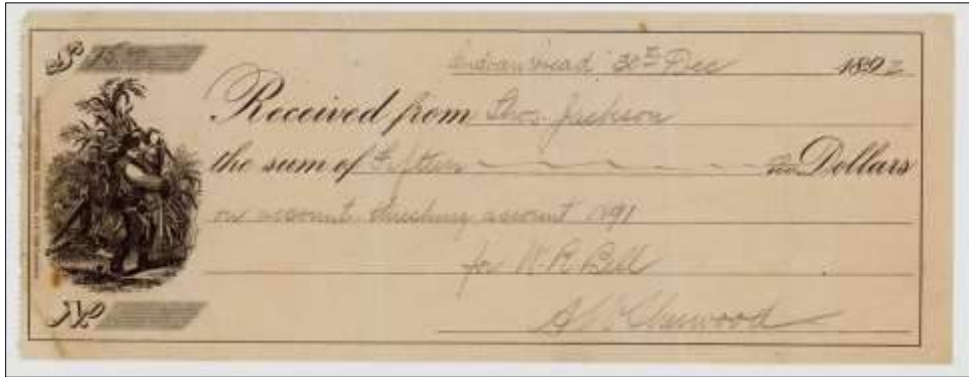 $ 15
Indian Head 30th Dec 1892
Received from Thos. Jackson
the sum of Fifteen no Dollars
on account threshing account 1891
for W. R. Bell
No